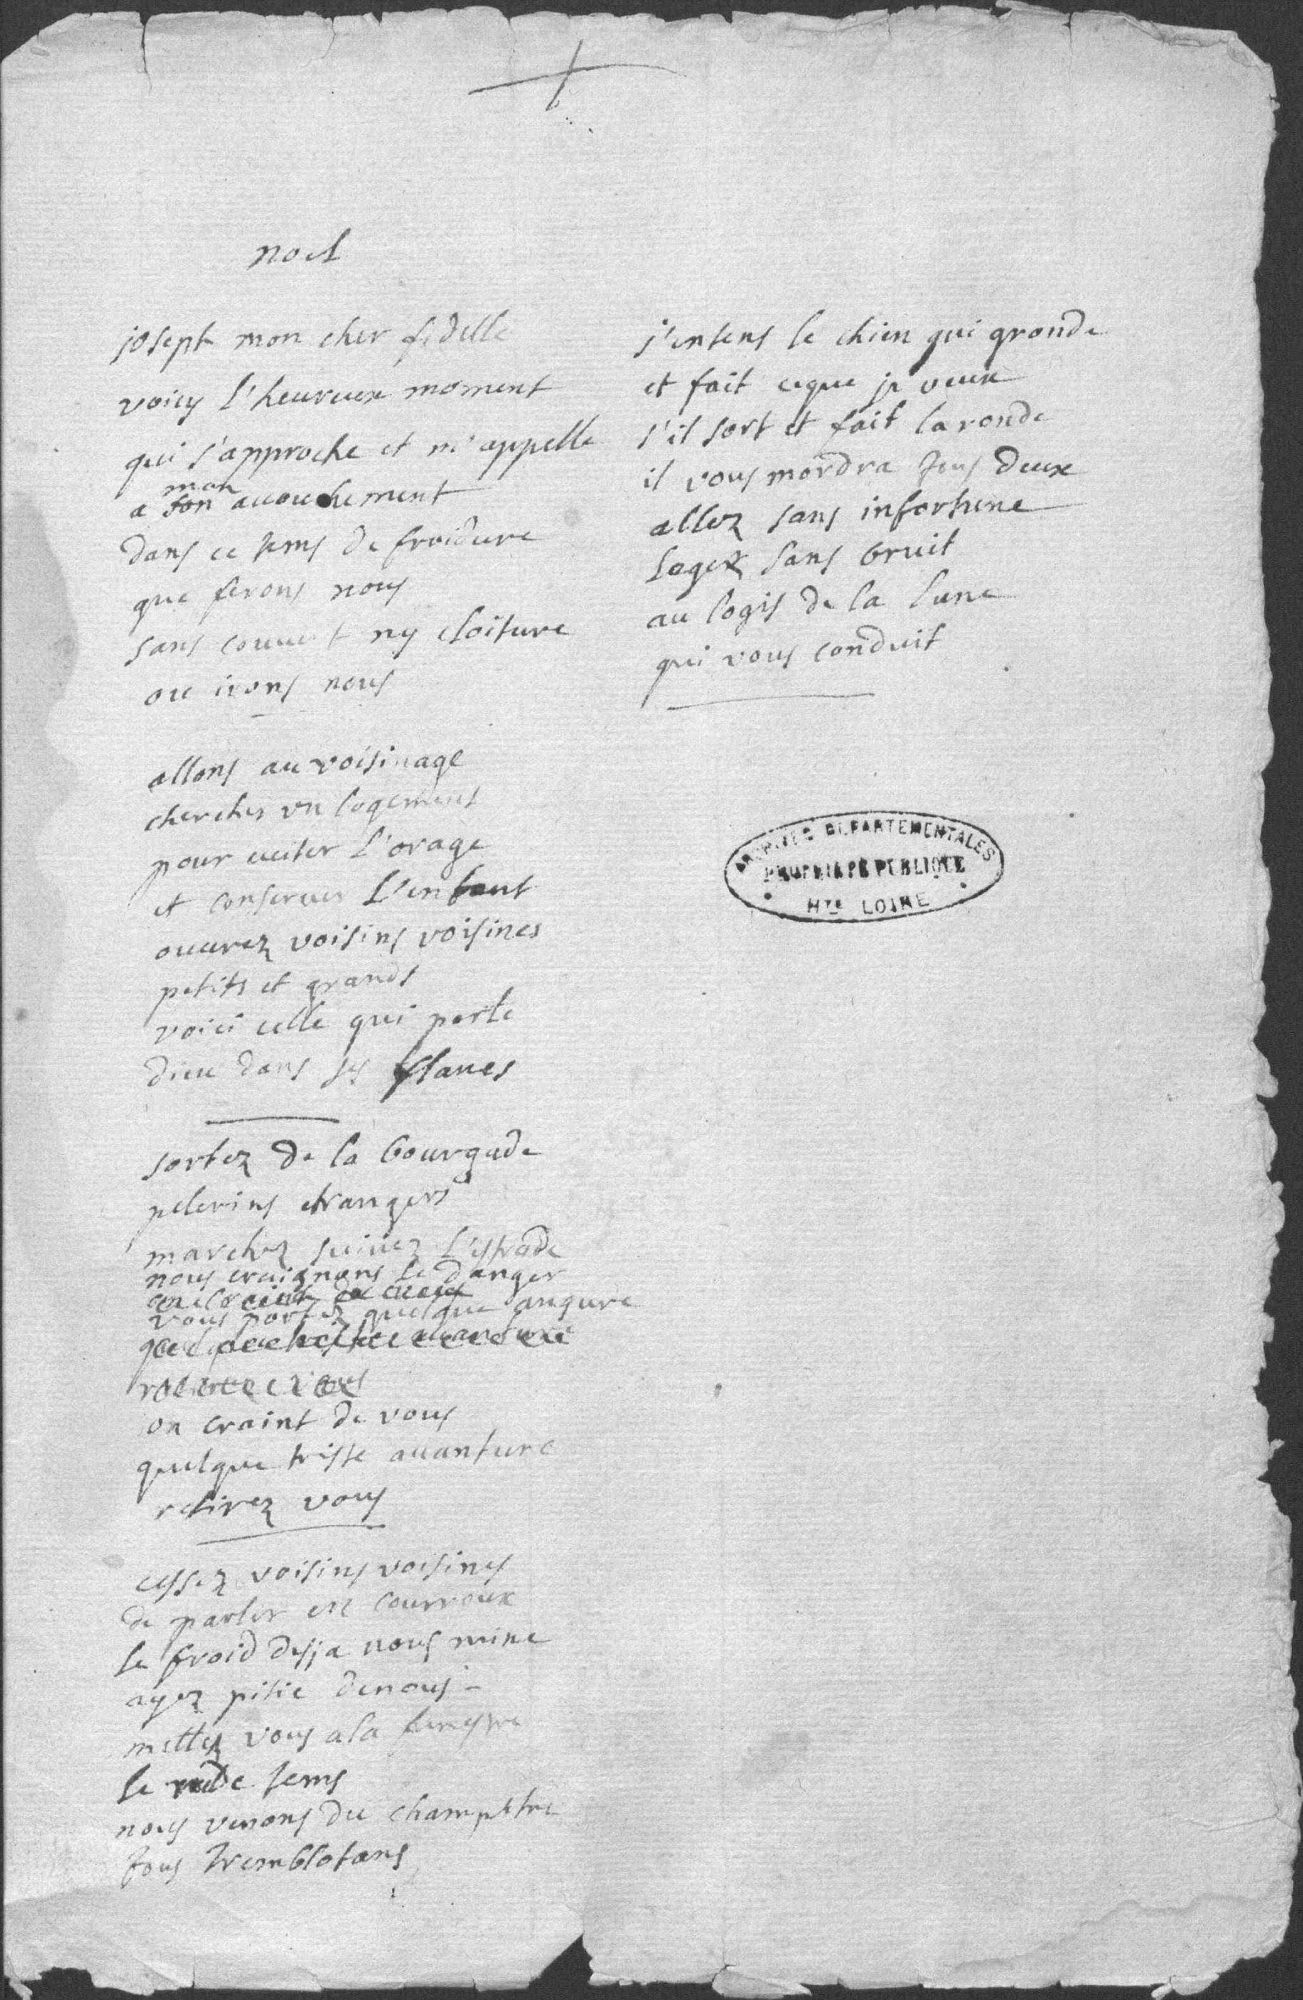 noel
josept mon cher fidelle
voicy l'heureux moment
qui s'approche et m'appelle
mon
a son accouchement
dans ce tems de froidure
que ferons nous
sans couvert ny cloiture
ou irons nous
allons au voisinage
chercher un logement
pour eviter l'orage
et conserver l'enfant
ouvrez voisins voisines
petits et grands
voici celle qui porte
dieu dans ses flancs
sortez de la bourgade
pelerins etrangers
marchez suivez l'estrade
nous craignons le danger
vous portez quelque augure
on craint de vous
quelque triste avanture
retirez vous
cessez voisins voisines
de parler en courroux
le froid desja nous mine
ayez pitie de nous
mettez vous a la fenestre
le rude tems
nous venons du champetre
tous tremblotans
j'entens le chien qui gronde
et fait ce que je veux
s'il sort et fait la ronde
il vous mordra tous deux
allez sans infortune
logez sans bruit
au logis de la lune
qui vous conduit
ARCHIVES DEPARTEMENTALES
PROPRIETE PUBLIQUE
HTE LOIRE